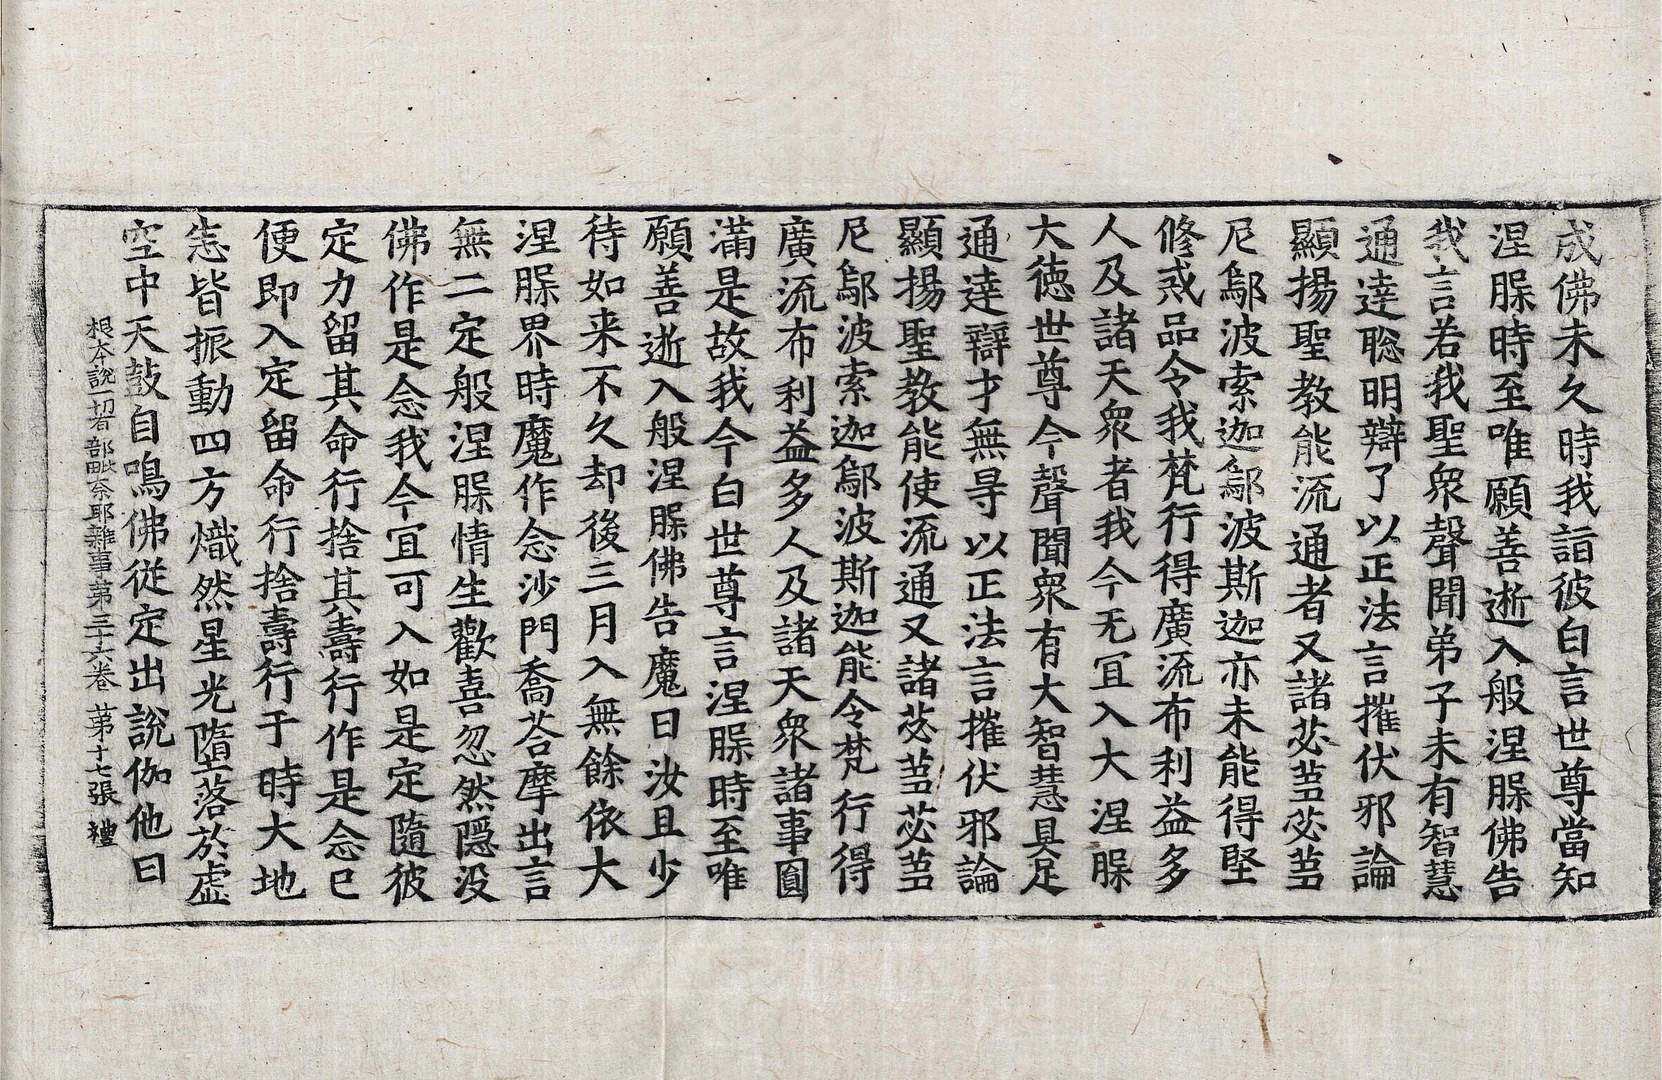 成佛未久時我詣彼白言世尊當知
涅脲時至唯願善逝入般涅脲佛告
我言若我聖衆聲聞弟子未有智慧
通達聦明辯了以正法言摧伏邪論
顯揚聖教能流通者又諸苾蒭苾蒭
尼鄔波索迦鄔波斯迦亦未能得堅
修戒品令我梵行得廣流布利益多
人及諸天衆者我今无冝入大涅脲
大德世尊今聲聞衆有大智慧具足
通達辯才無㝵以正法言摧伏邪論
顯揚聖教能使流通又諸苾蒭苾蒭
尼鄔波索迦鄔波斯迦能令梵行得
廣流布利益多人及諸天衆諸事圓
滿是故我今白世尊言涅脲時至唯
願善逝入般涅脲佛告魔曰汝且少
待如来不久却後三月入無餘依大
涅脲界時魔作念沙門喬荅摩出言
無二定般涅脲情生歡喜忽然隱没
佛作是念我今冝可入如是定隨彼
定力留其命行捨其壽行作是念已
便即入定留命行捨壽行于時大地
悉皆振動四方熾然星光墮落於虛
空中天鼓自鳴佛從定出說伽他曰
根本說一切有部毗奈耶雜事第三十六卷 苐十七張 禮